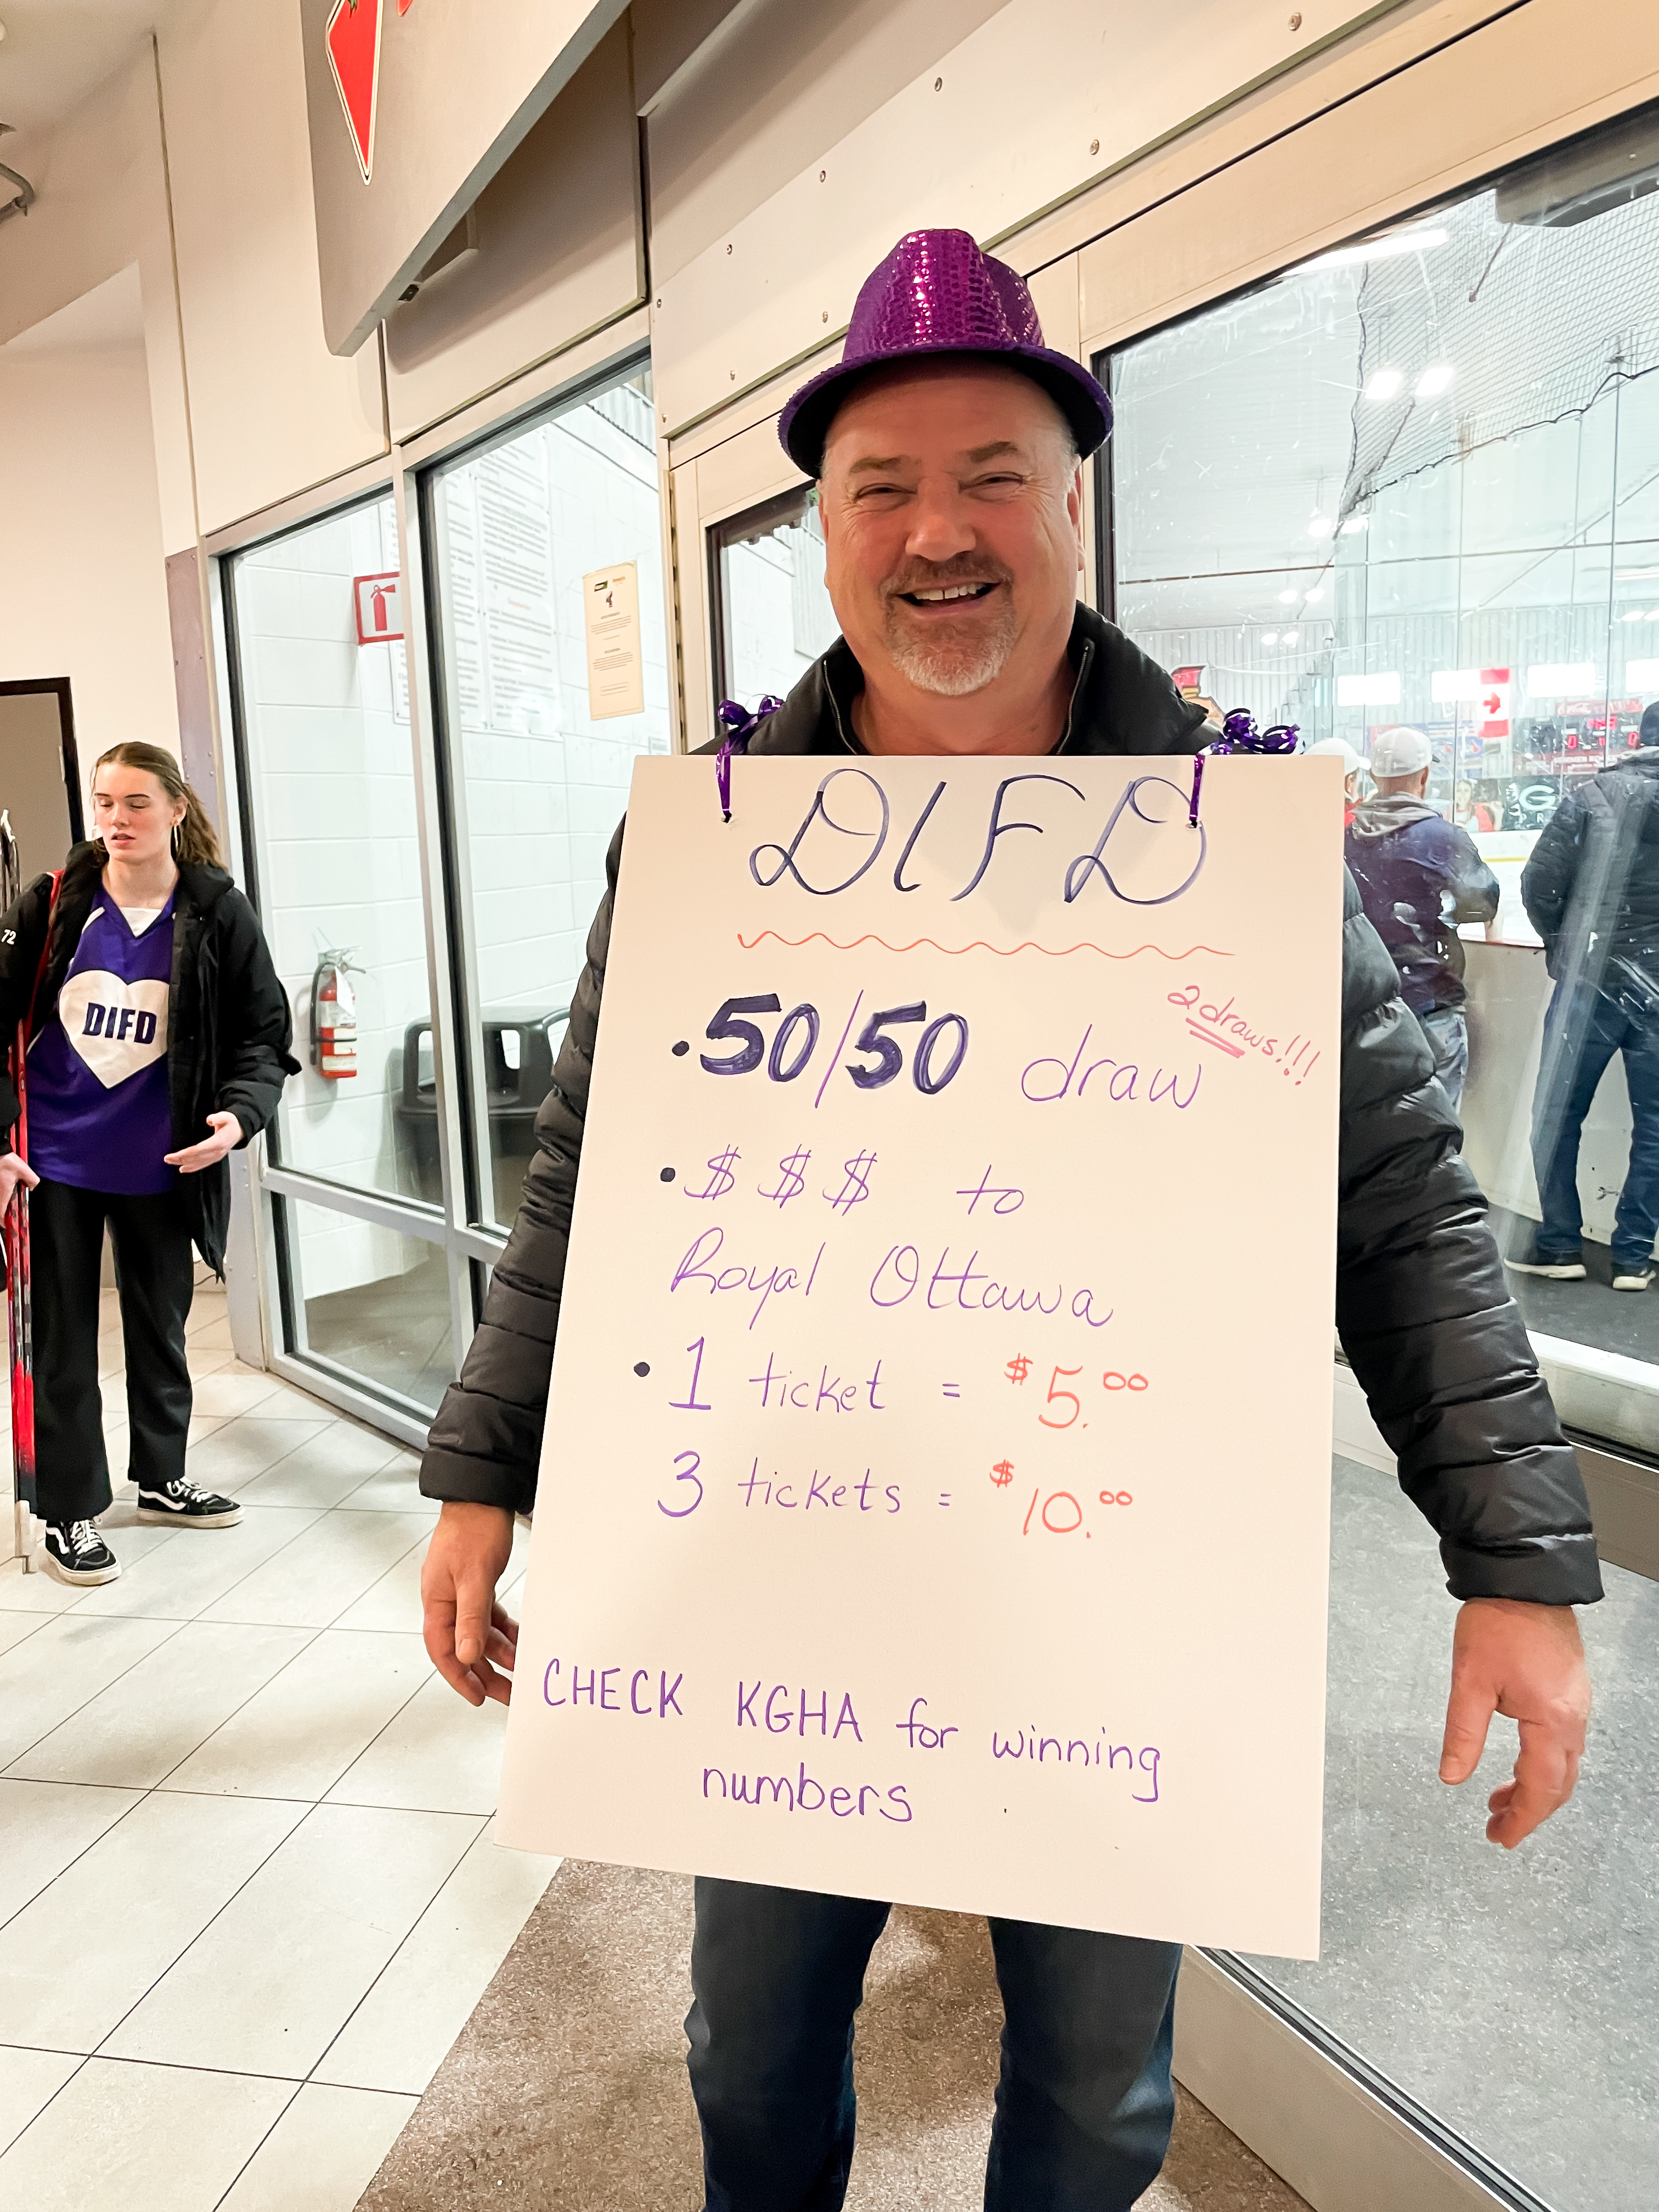 DIFD
• 50/50 draw
2 draws!!!
• $ $ $ to
Royal Ottawa
• 1 ticket = $5.00
3 tickets = $10.00
CHECK KGHA for winning
numbers
72
DIFD